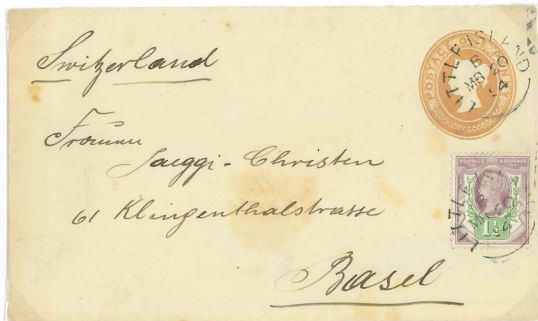 Switzerland
LITTLE ISLAND
B
MR 20
94
POSTAGE
Frauen
Jaeggi - Christen
61 Klingenthalstrasse
Basel
POSTAGE REVENUE
1½d
LITTLE